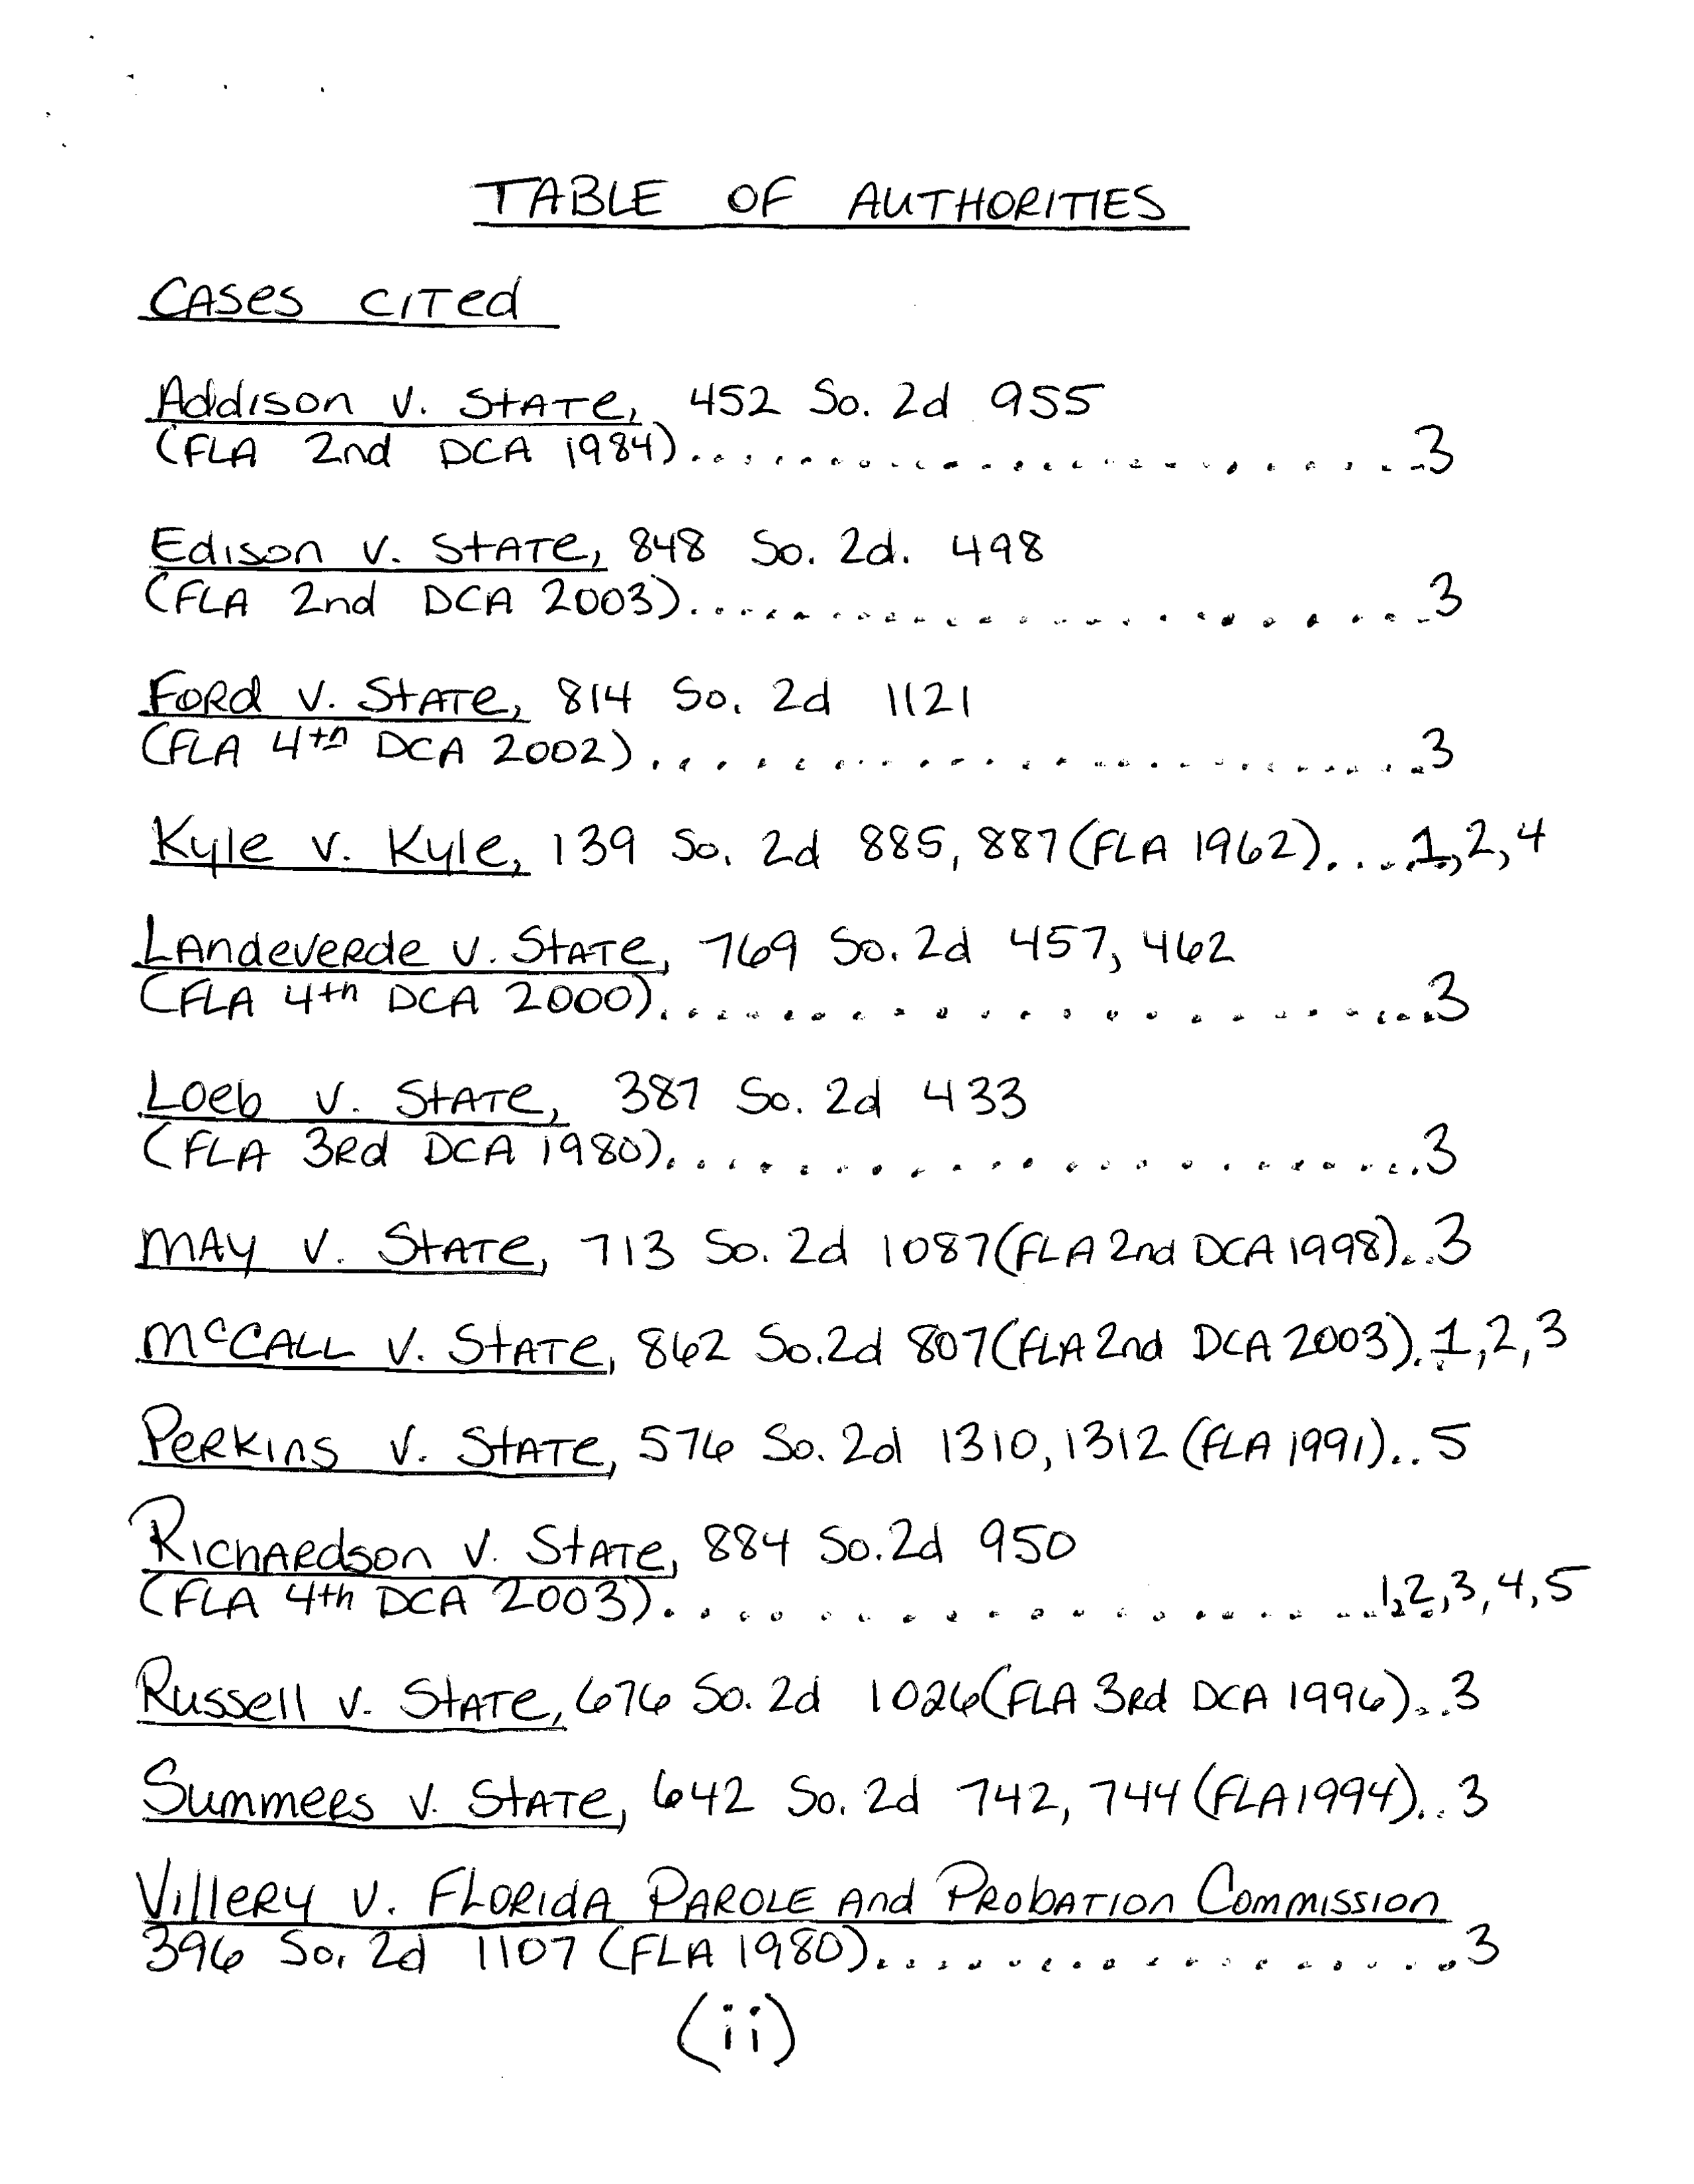 TABLE OF AUTHORITIES
CASES CITED
Addison v. State, 452 So. 2d 955
(FLA 2nd DCA 1984)..............................3
Edison v. State, 848 So. 2d. 498
(FLA 2nd DCA 2003)..............................3
Ford v. State, 814 So. 2d 1121
(FLA 4th DCA 2002)..............................3
Kyle v. Kyle, 139 So. 2d 885, 887 (FLA 1962).....1,2,4
Landeverde v. State, 769 So. 2d 457, 462
(FLA 4th DCA 2000)..............................3
Loeb v. State, 387 So. 2d 433
(FLA 3rd DCA 1980)..............................3
May v. State, 713 So. 2d 1087 (FLA 2nd DCA 1998)...3
McCall v. State, 862 So.2d 807 (FLA 2nd DCA 2003)..1,2,3
Perkins v. State, 576 So. 2d 1310, 1312 (FLA 1991)..5
Richardson v. State, 884 So.2d 950
(FLA 4th DCA 2003)..............................1,2,3,4,5
Russell v. State, 676 So. 2d 1026 (FLA 3rd DCA 1996)...3
Summers v. State, 642 So. 2d 742, 744 (FLA 1994)...3
Villery v. Florida Parole and Probation Commission
396 So. 2d 1107 (FLA 1980)....................3
(ii)